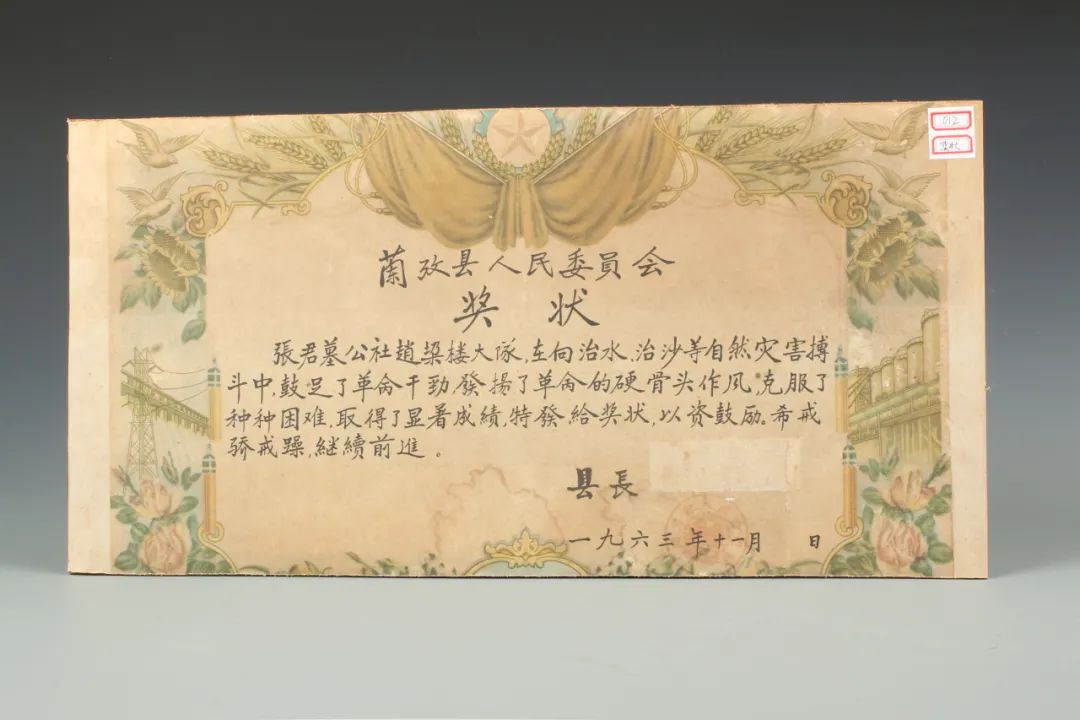 蘭攷县人民委員会
奖状
張君墓公社趙樑楼大隊,在向治水、治沙等自然灾害搏
斗中,鼓足了革命干劲,發揚了革命的硬骨头作风,克服了
种种困难,取得了显著成績,特發給奖状,以资鼓励。希戒
骄戒躁,継續前進。
县長
一九六三年十一月 日
012
奖状